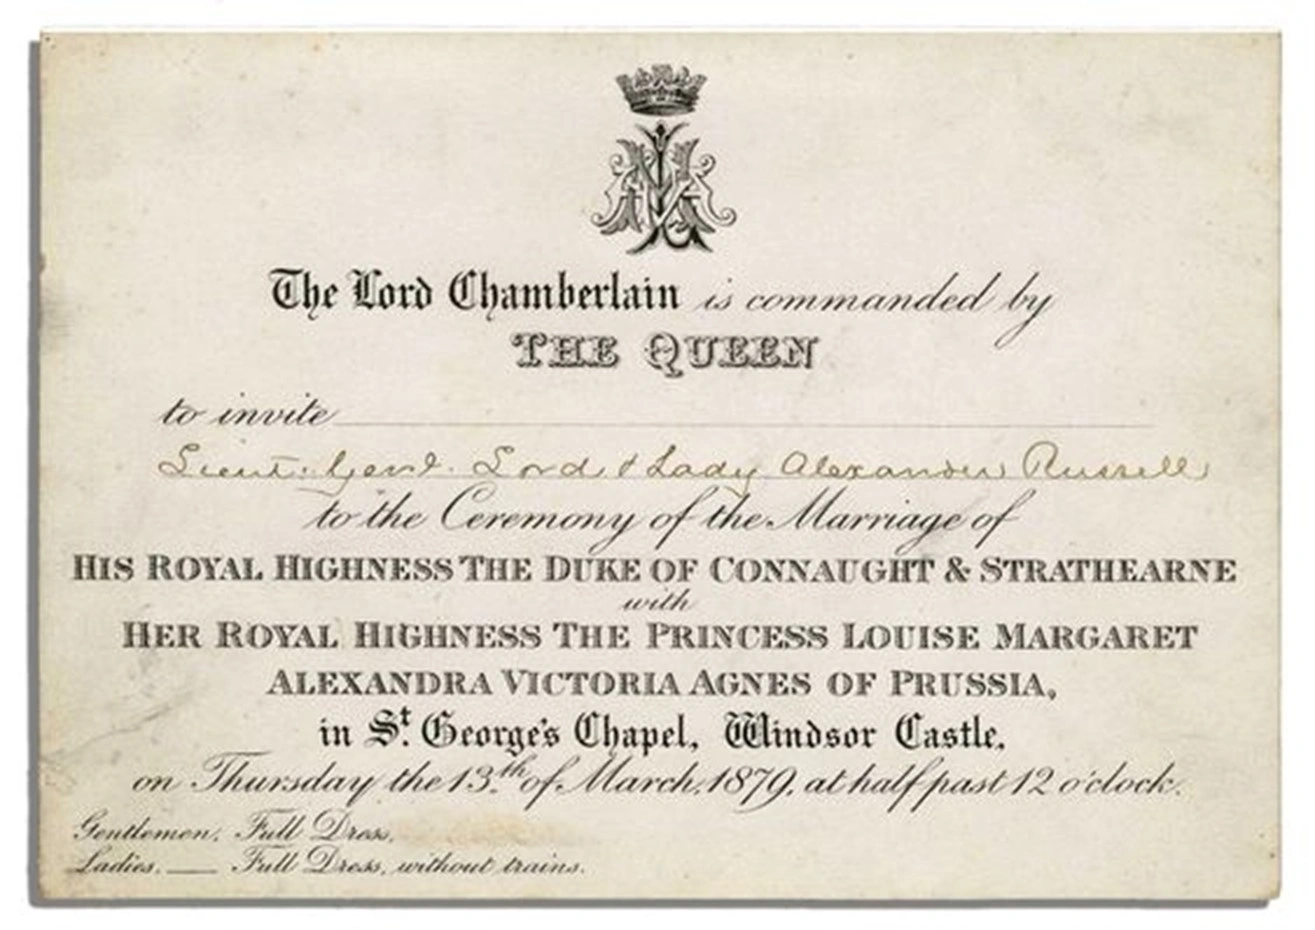 The Lord Chamberlain is commanded by
THE QUEEN
to invite
Lieut: Genl. Lord & Lady Alexander Russell
to the Ceremony of the Marriage of
HIS ROYAL HIGHNESS THE DUKE OF CONNAUGHT & STRATHEARNE
with
HER ROYAL HIGHNESS THE PRINCESS LOUISE MARGARET
ALEXANDRA VICTORIA AGNES OF PRUSSIA,
in St. George's Chapel, Windsor Castle,
on Thursday the 13th. of March, 1879, at half past 12 o'clock.
Gentlemen, Full Dress,
Ladies, — Full Dress, without trains.